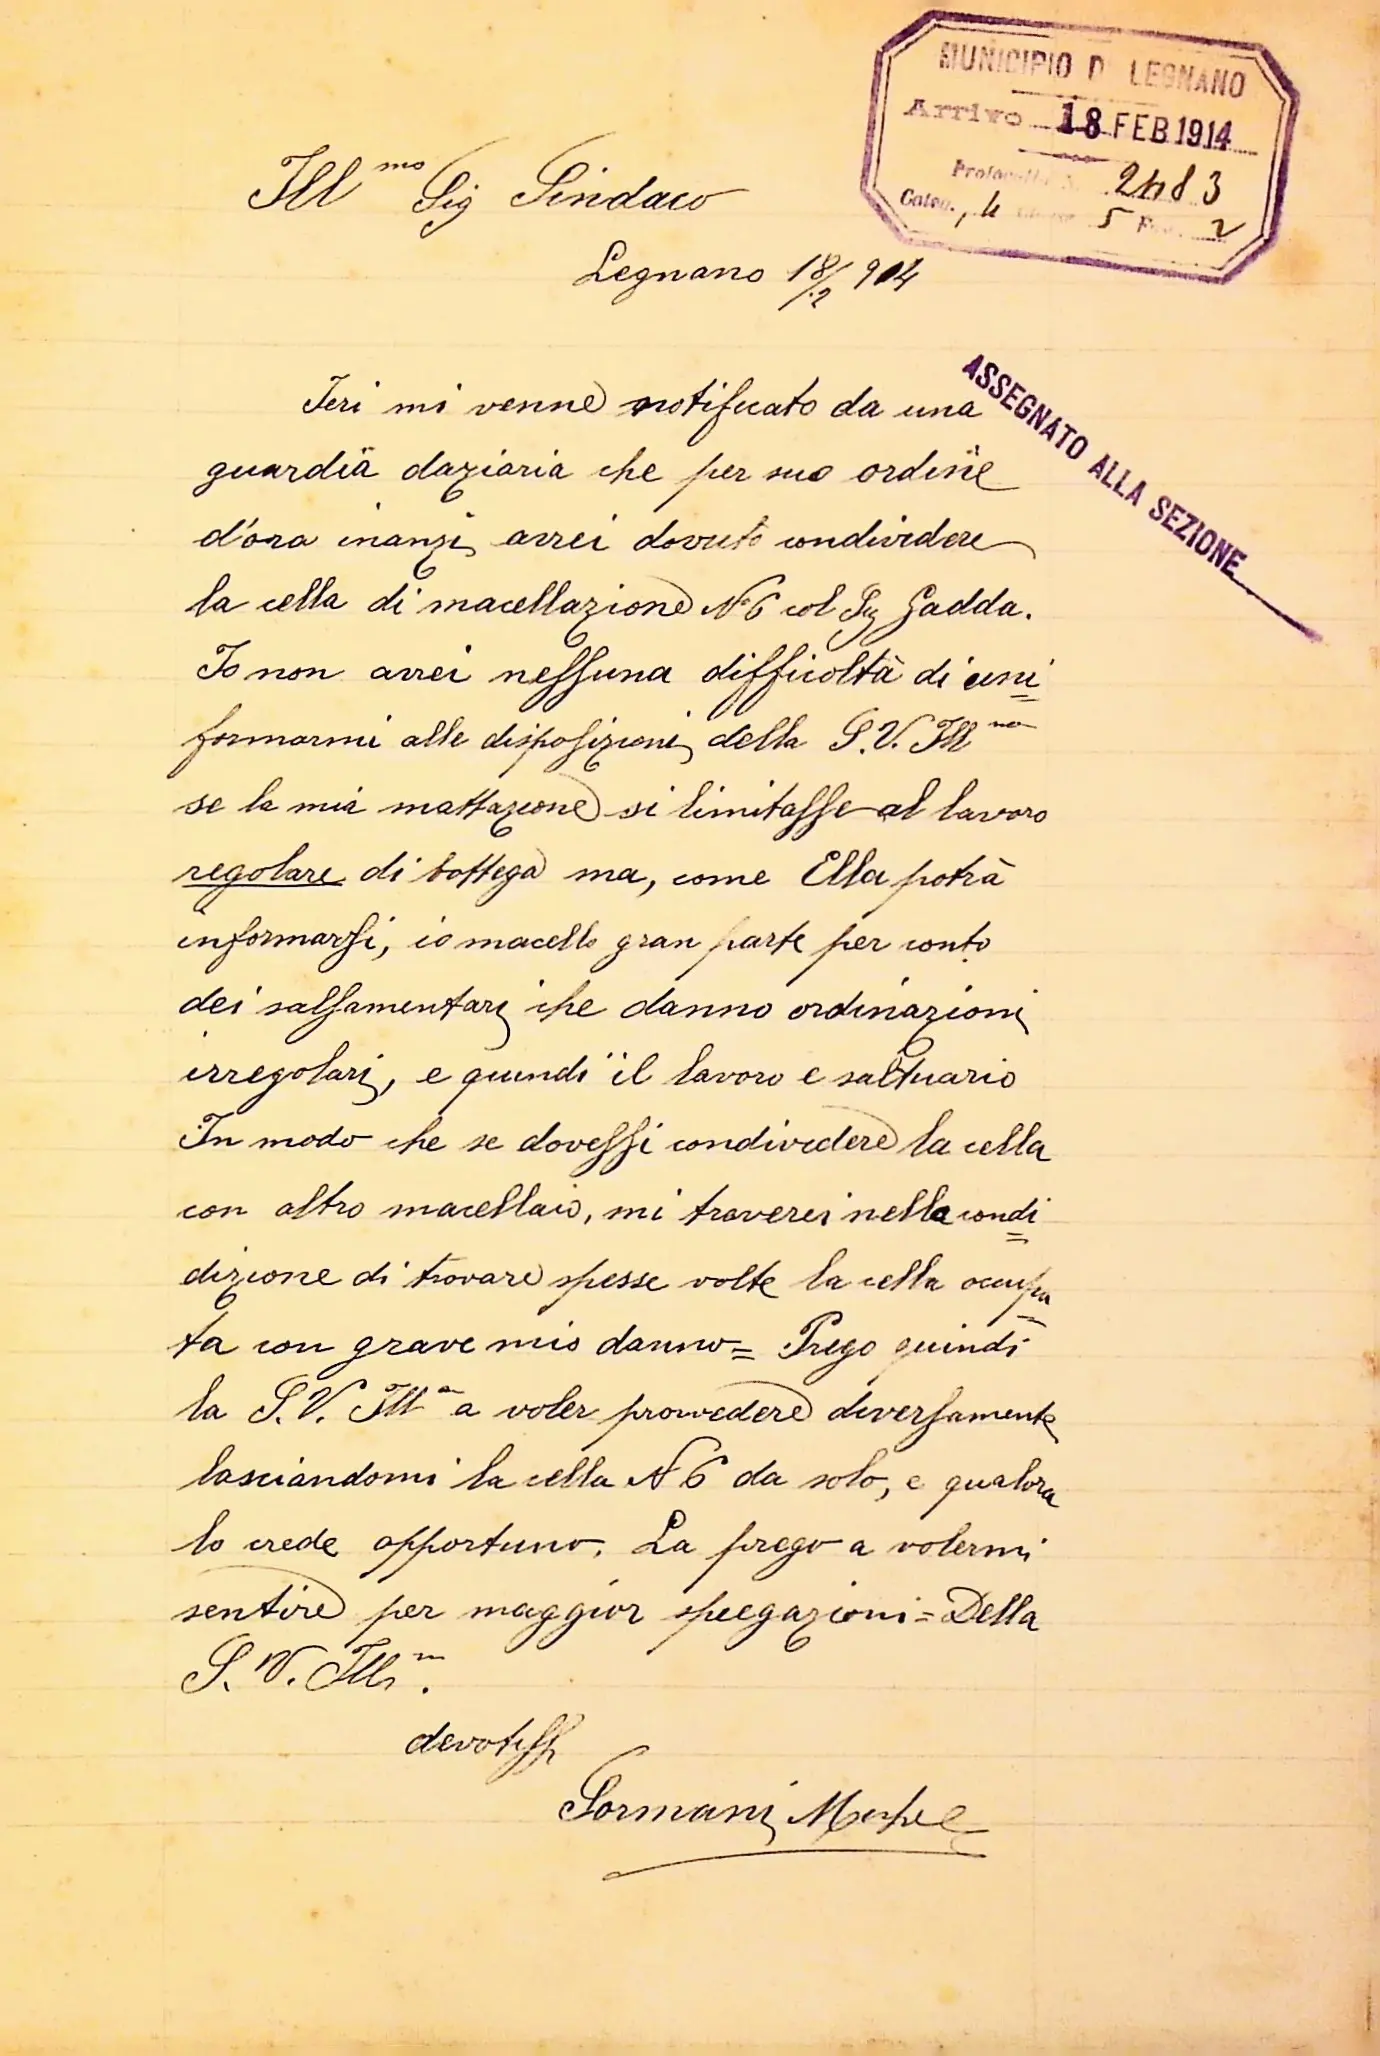 MUNICIPIO D LEGNANO
Arrivo 18 FEB. 1914
Protocollo N. 2483
Categ. 4 Classe 5 Fasc. 2
Ill.mo Sig Sindaco
Legnano 18/2 914
ASSEGNATO ALLA SEZIONE
Ieri mi venne notificato da una
guardia daziaria che per suo ordine
d'ora inanzi avrei dovuto condividere
la cella di macellazione N° 6 col Sig Gadda.
Io non avrei nessuna difficoltà di uni=
formarmi alle disposizioni della S.V. Ill ma
se la mia mattazione si limitasse al lavoro
regolare di bottega ma, come Ella potrà
informarsi, io macello gran parte per conto
dei salsamentari che danno ordinazioni
irregolari, e quindi il lavoro e saltuario
In modo che se dovessi condividere la cella
con altro macellaio, mi troverei nella condi=
dizione di trovare spesse volte la cella occupa=
ta con grave mio danno= Prego quindi
la S.V. Ill a a voler provvedere diversamente
lasciandomi la cella N 6 da solo, e qualora
lo crede opportuno. La prego a volermi
sentire per maggior spiegazioni= Della
S. V. Ill m.
devotiss
Sormani